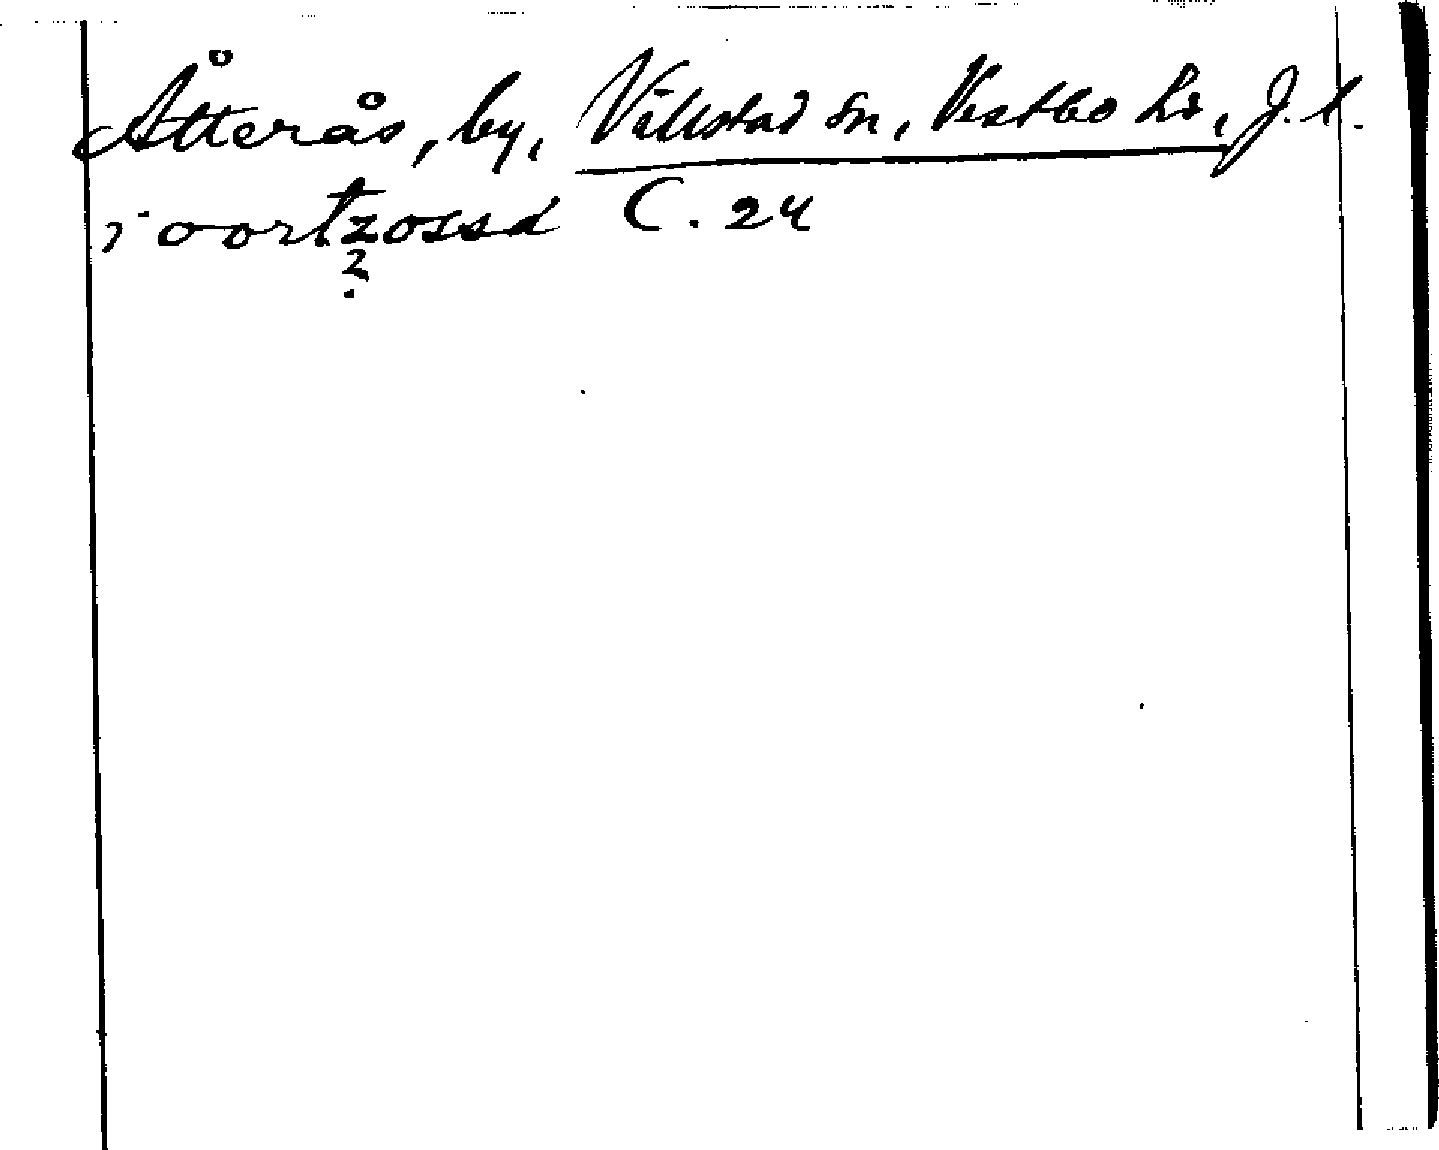 Åtterås, by, Vållstad sn, Vestbo hd, J. l.
i oortzossa C. 24
?